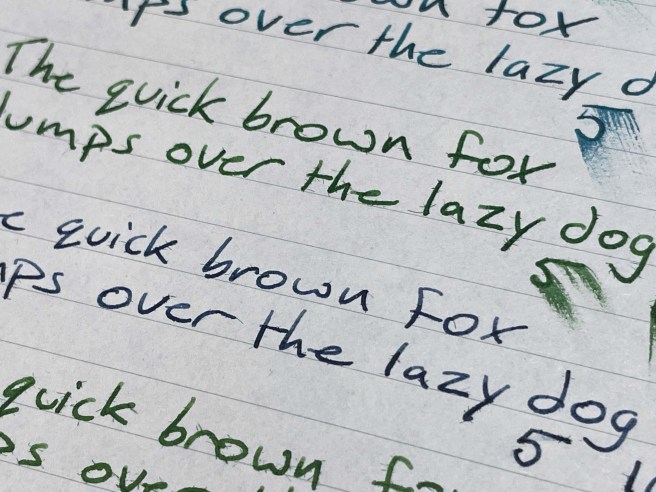 fox
over the lazy d
5
The quick brown fox
Jumps over the lazy dog
5
quick brown Fox
over the lazy dog
5
quick brown
over